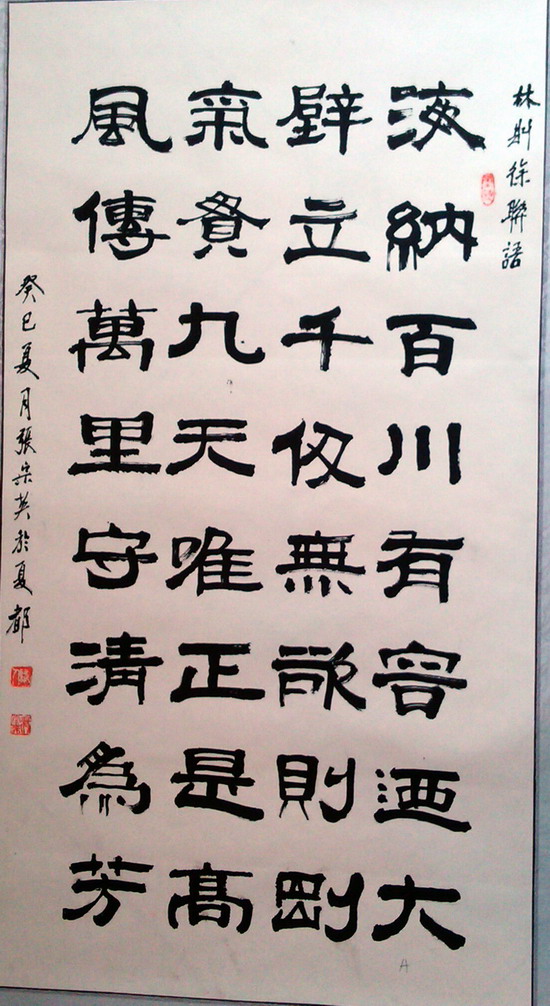 林則徐聯語
海納百川有容迺大
壁立千仞無欲則剛
氣貫九天唯正是高
風傳萬里守清為芳
癸巳夏月張英於夏都
A